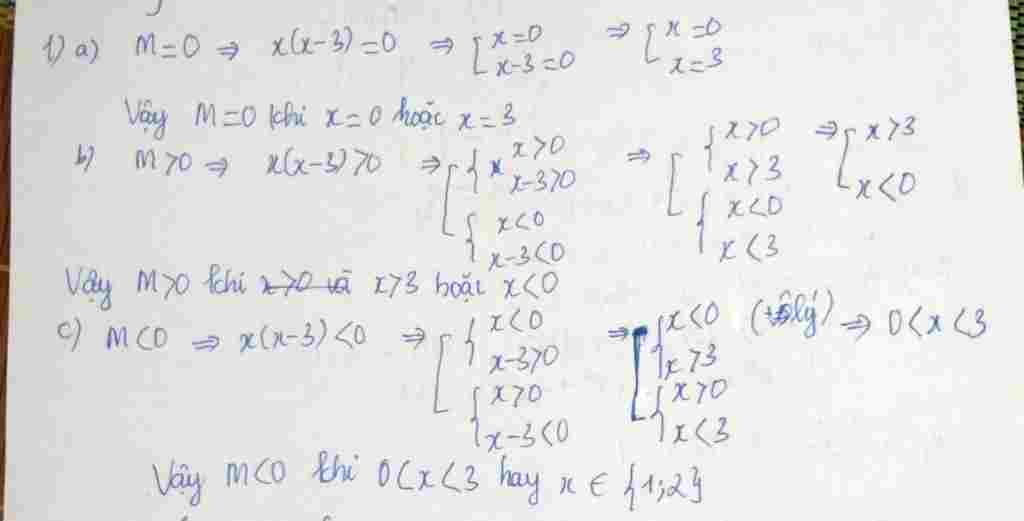 1) a) M=0 ⇒ x(x-3)=0 ⇒ [ x=0 ; x-3=0 ⇒ [ x=0 ; x=3
Vậy M=0 khi x=0 hoặc x=3
b) M>0 ⇒ x(x-3)>0 ⇒ [ { x>0 ; x-3>0 ; { x<0 ; x-3<0 ⇒ [ { x>0 ; x>3 ; { x<0 ; x<3 ⇒ [ x>3 ; x<0
Vậy M>0 khi x>0 và x>3 hoặc x<0
c) M<0 ⇒ x(x-3)<0 ⇒ [ { x<0 ; x-3>0 ; { x>0 ; x-3<0 ⇒ [ { x<0 ; x>3 (vô lý) ; { x>0 ; x<3 ⇒ 0<x<3
Vậy M<0 khi 0<x<3 hay x ∈ {1;2}